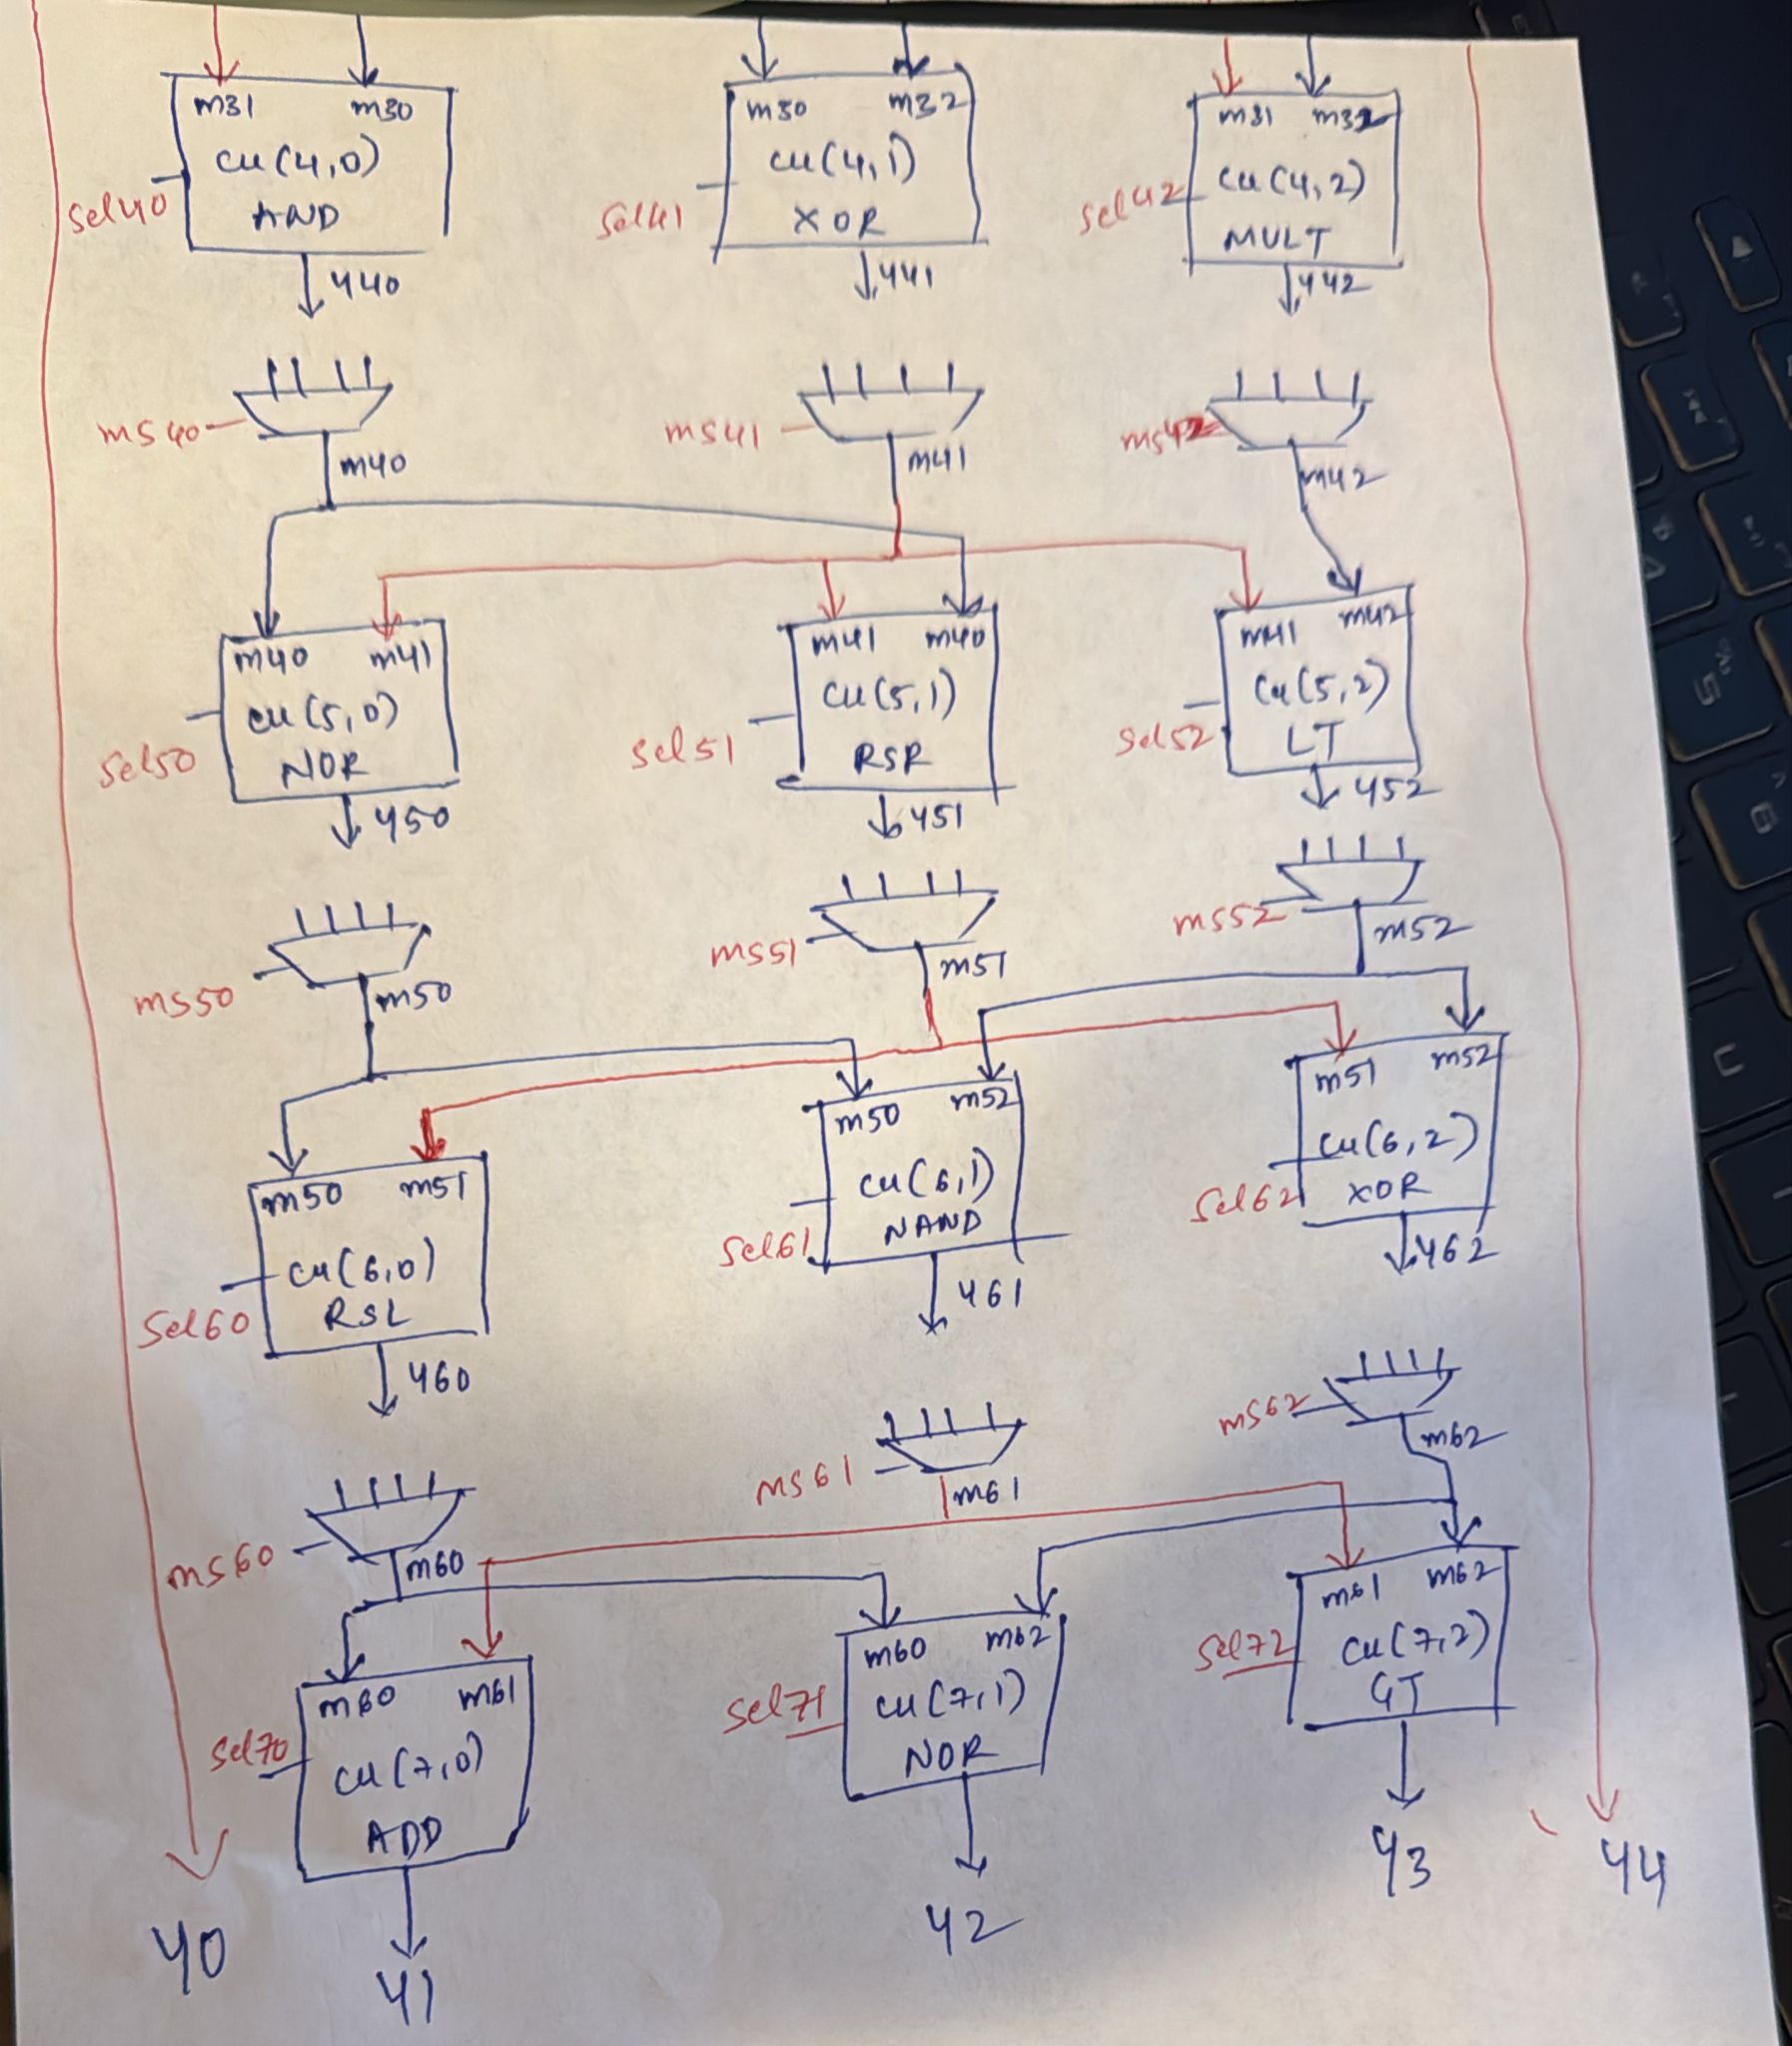 m31 m30
cu(4,0)
AND
sel40
y40
m30 m32
cu(4,1)
XOR
sel41
y41
m31 m32
cu(4,2)
MULT
sel42
y42
ms40
m40
ms41
m41
ms42
m42
m40 m41
cu(5,0)
NOR
sel50
y50
m41 m40
cu(5,1)
RSR
sel51
y51
m41 m42
cu(5,2)
LT
sel52
y52
ms50
m50
ms51
m51
ms52
m52
m50 m51
cu(6,0)
RSL
sel60
y60
m50 m52
cu(6,1)
NAND
sel61
y61
m51 m52
cu(6,2)
XOR
sel62
y62
ms60
m60
ms61
m61
ms62
m62
m60 m61
cu(7,0)
ADD
sel70
m60 m62
cu(7,1)
NOR
sel71
m61 m62
cu(7,2)
GT
sel72
y0
y1
y2
y3
y4